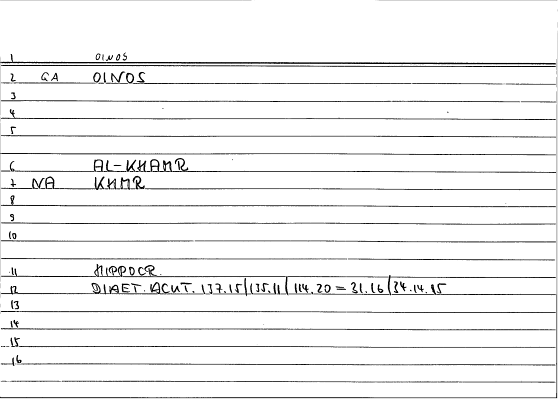 1 OINOS
2 GA OINOS
3
4
5
6 AL-KHAMR
7 NA KHMR
8
9
10
11 HIPPOCR.
12 DIAET. ACUT. 137.15/135.11/114.20 = 31.16/34.14.15
13
14
15
16